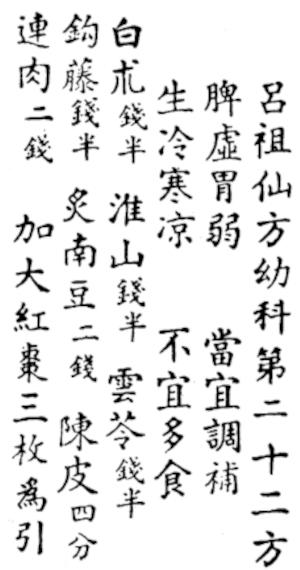 呂祖仙方幼科第二十二方
脾虛胃弱　當宜調補
生冷寒凉　不宜多食
白朮錢半　淮山錢半　雲苓錢半
鈎藤錢半　炙南豆二錢　陳皮四分
連肉二錢　加大紅棗三枚爲引